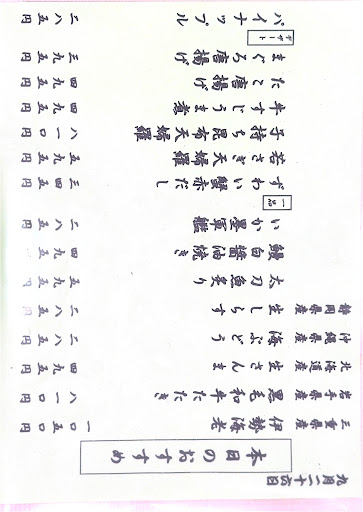 九月二十六日
本日のおすすめ
三重県産 伊勢海老 一〇五〇円
岩手県産 黒毛和牛たたき 八一〇円
北海道産 生さんま 四九五円
沖縄県産 海ぶどう 二八五円
静岡県産 生しらす 二八五円
太刀魚炙り 五九五円
鰻白醤油焼き 四九五円
いか墨軍艦 二八五円
一品
ずわい蟹赤だし 四三五円
若さぎ天婦羅 五九五円
子持ち昆布天婦羅 八一〇円
牛すじうま煮 四九五円
たこ唐揚げ 四九五円
まぐろ唐揚げ 三九五円
デザート
パイナップル 二八五円